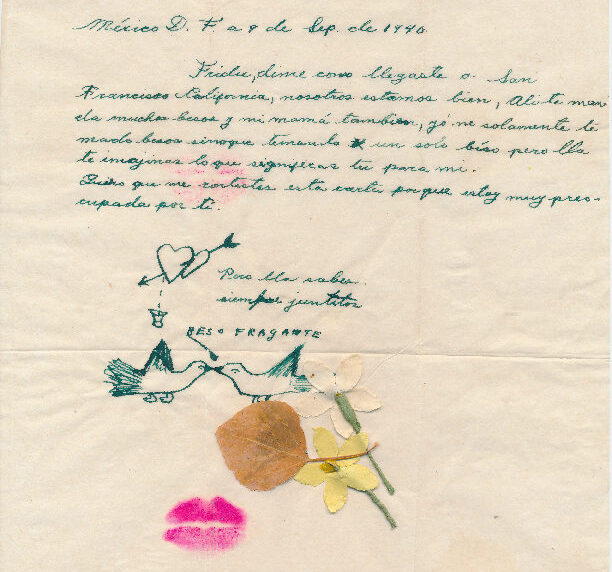 México D. F. a 9 de Sep. de 1940.
Fridu, dime como llegaste a San
Francisco California, nosotros estamos bien, Ali te man
da muchos besos y mi mamá tambien, yó no solamente te
mado besos sinoque temando un solo béso pero lla
te imajinas lo que segnificas tu para mi.
Quiero que me contestes esta carta porque estoy muy preo-
cupada por ti.
Pero lla sabes.
siempre juntitos
BESO FRAGANTE